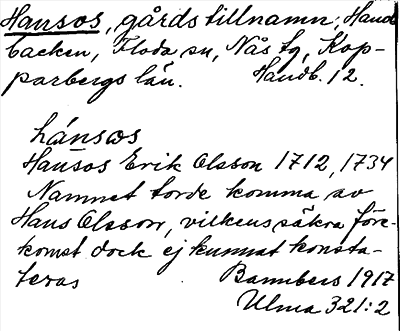 Hansos, gårdstillnamn, Hand
backen, Floda sn, Nås tg, Kop-
parbergs län. Handb. 12.
hánsos
Hansos Erik Olsson 1712, 1734
Namnet torde komma av
Hans Olsson, vilkens säkra före-
komst dock ej kunnat konsta-
teras Bannbers 1917
Ulma 321:2